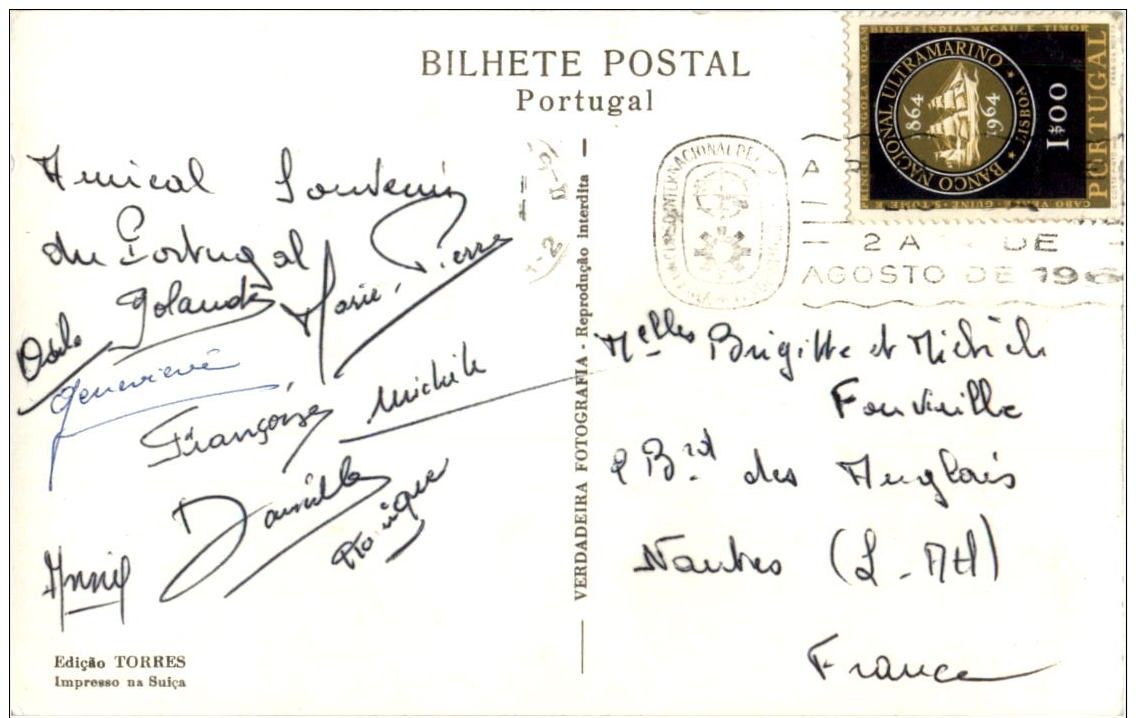 BILHETE POSTAL
Portugal
Amical Souvenir
du Portugal
Odile Yolande Marie-Pierre
Geneviève
Françoise Michèle
Danielle
Monique
Annie
Edição TORRES
Impresso na Suiça
VERDADEIRA FOTOGRAFIA - Reprodução interdita
PRINCIPE · ANGOLA · MOÇAMBIQUE · INDIA · MACAU E TIMOR
BANCO NACIONAL ULTRAMARINO ★ LISBOA ★
1864 1964
1$00
PORTUGAL
CABO VERDE · GUINE · S. TOME
INTERNACIONAL DE
2 A DE
AGOSTO DE 196
Melles Brigitte et Michèle
Bd des Anglais
Nantes (L-Atl)
France